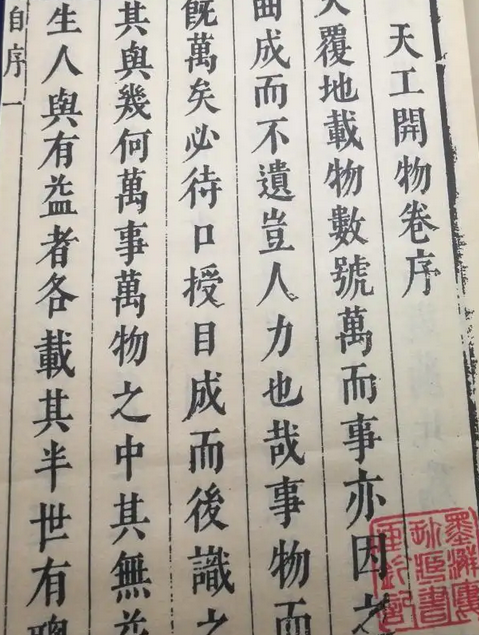 天工開物卷序
天覆地載物數號萬而事亦因之
曲成而不遺豈人力也哉事物而
旣萬矣必待口授目成而後識之
其與幾何萬事萬物之中其無益
生人與有益者各載其半世有聰
自序一